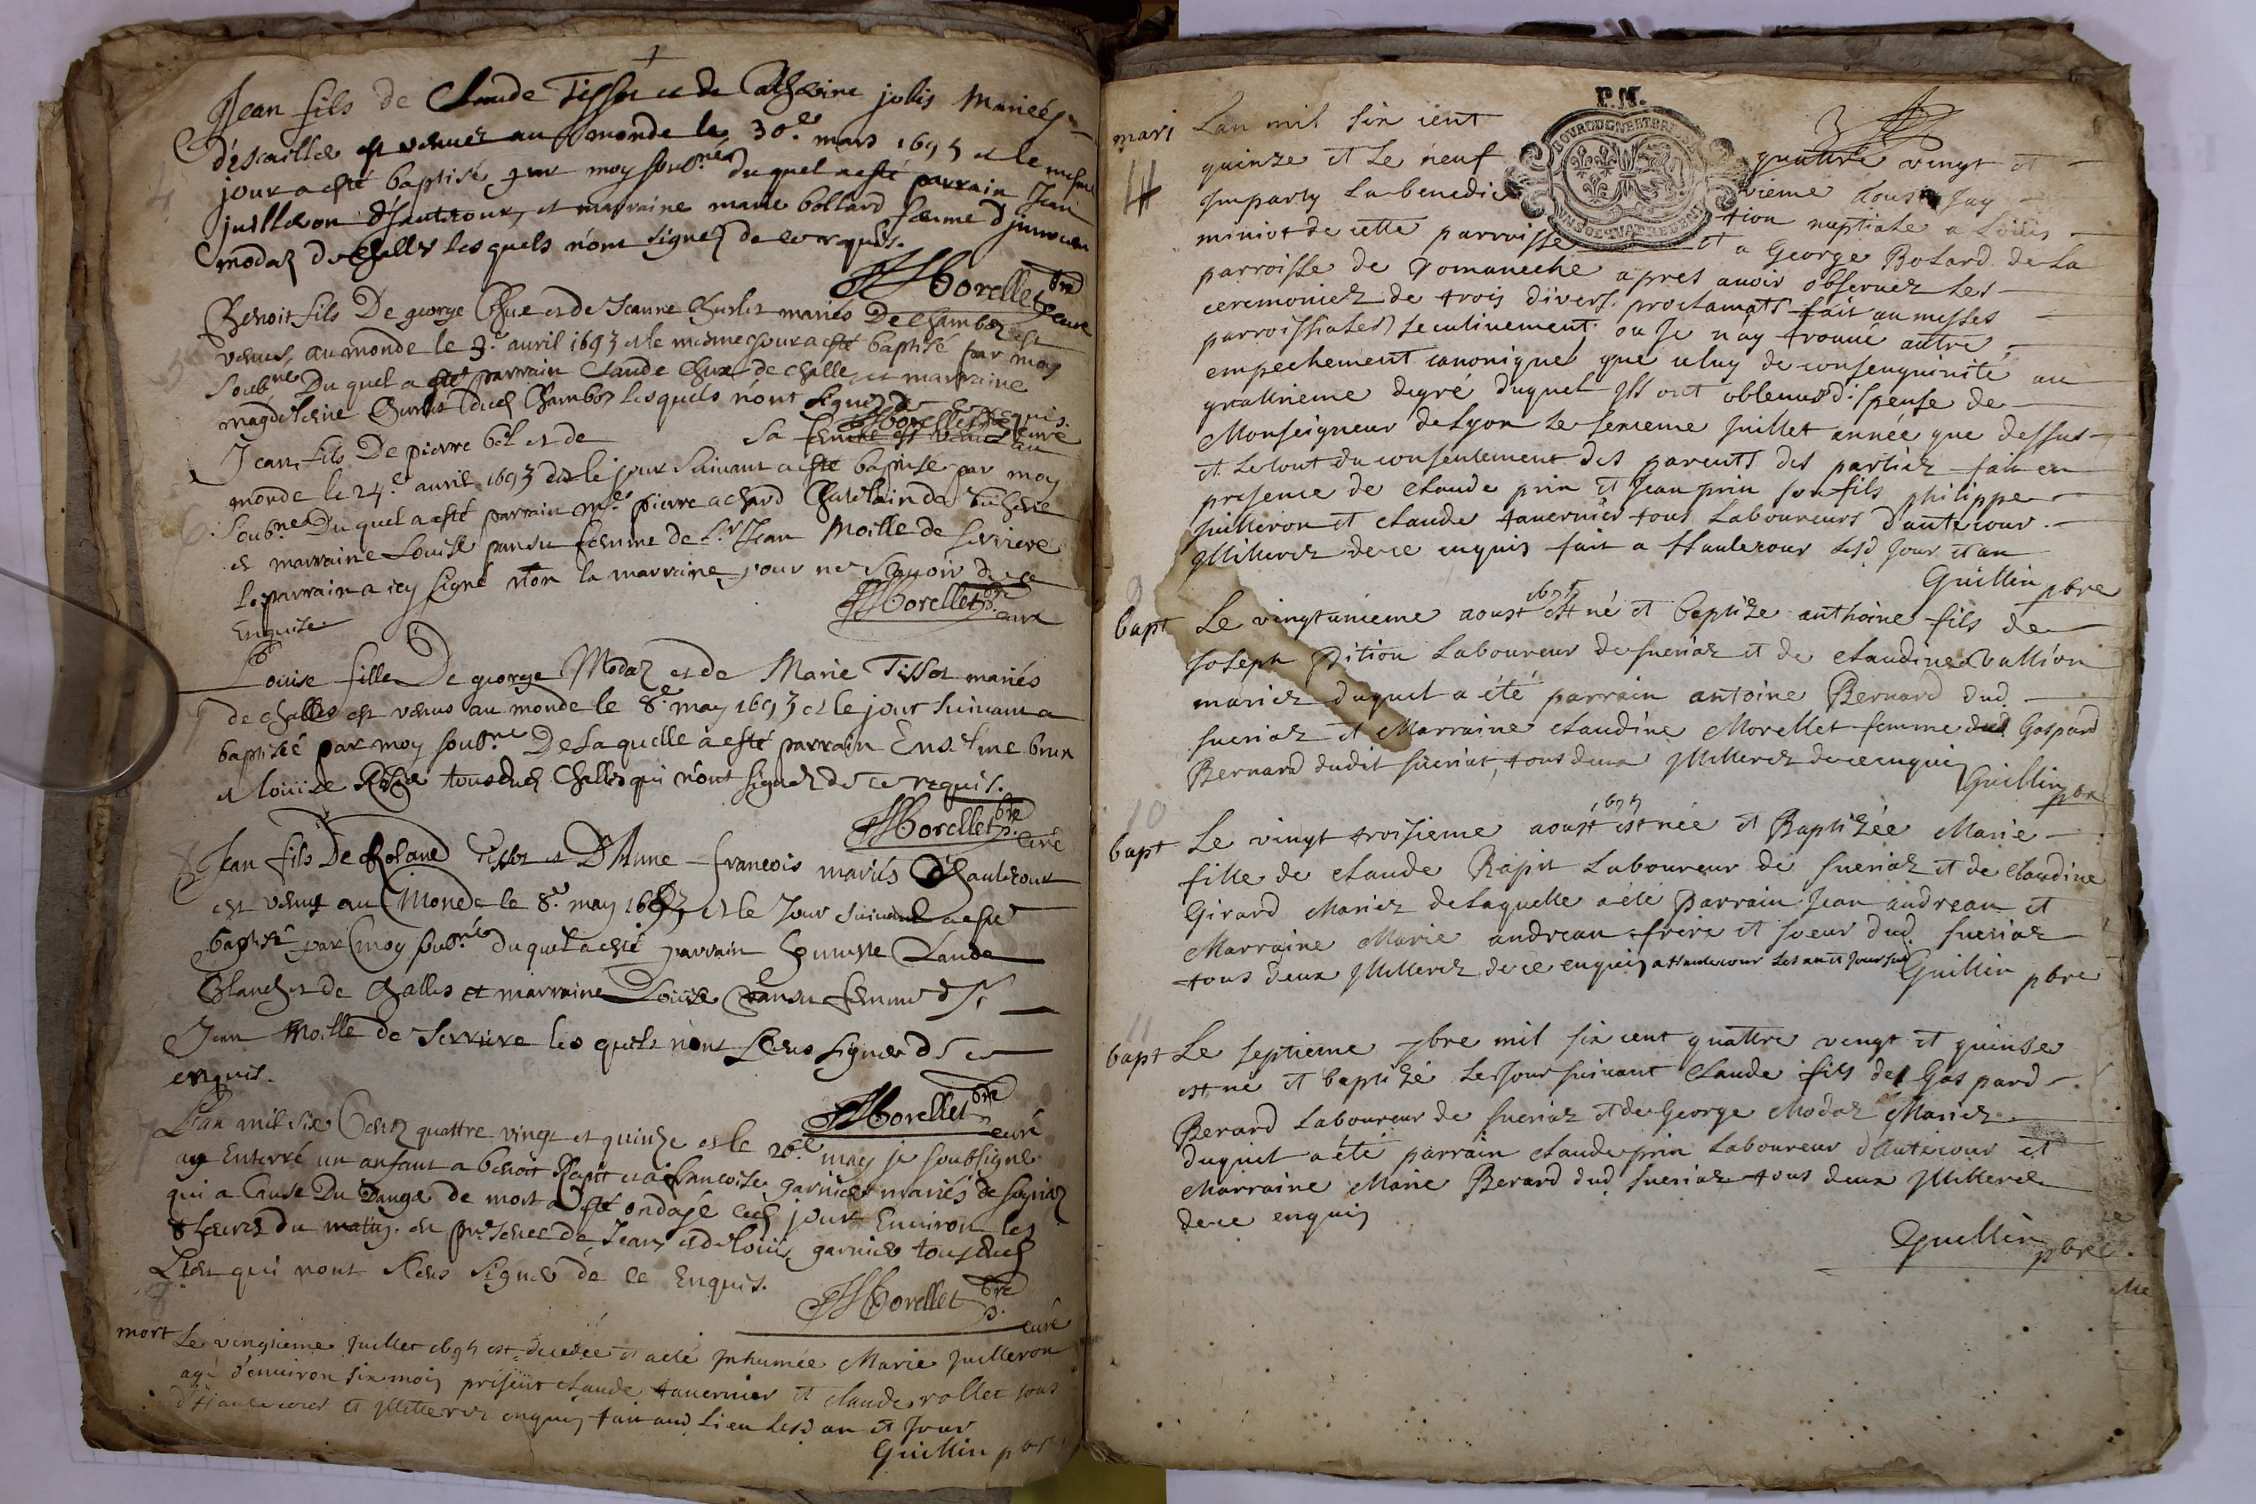 Jean fils de Claude Tissot et de Catherine jolis Mariés
d'escailles est venus au monde le 30.e mars 1695 et le mesme
jour a esté baptisé par moy soubs.né duquel a esté parrain Jean
juilleron d'hautecour, et marraine marie bollard femme d
modaz de Challes lesquels n'ont signez de ce requis.
Morellet pbre curé
Benoit fils De george Chue et de Jeanne mariés De Chamboz est
venus au monde le 3.e avril 1695 et le mesme jour a esté baptisé par moy
soubné Du quel a esté parrain Claude Chue de Challe et marraine
magdeleine dud Chamboz lesquels n'ont signez de ce requis.
Morellet pbre curé
Jean fils De pierre bel et de sa femme est venus au
monde le 24.e avril 1695 et le jour suivant a esté baptisé par moy
Soub.né Du quel a esté parrain m.e pierre achard Chatelain de
et marraine Louise pansu femme de S.r Jean Moille de serriere
Le parrain a icy signé non la marraine pour ne scavoir de ce
Enquise.
Morellet pbre curé
Louise fille De george Modaz et de Marie Tissot mariés
de Challes est venus au monde le 8.e may 1695 et le jour suivant a
baptisé par moy soub.né De laquelle a esté parrain brun
et louise tous dud Challes qui n'ont signez de ce requis.
Morellet pbre curé
Jean fils De Roland Tissot et D'Anne francois mariés d'hautecour
est venus au Monde le 8.e may 1695 et le Jour suivant a esté
baptisé par moy soub.né du quel a esté parrain honneste Claude
Blanchet de Challes et marraine Louise pansu femme d S.r
Jean Moille de Serriere lesquels n'ont sceus signer de ce
enquis.
Morellet pbre curé
L'an mil six Cents quattre vingt et quinze et le 26.e may je soubsigné
ay Enterré un enfant a benoit Rapit et a francoise garnier mariés de
qui a Cause Du Danger de mort a esté ondoyé led jour Environ les
8 heures du matin en presence de Jean et de louis garnier tous dud
Lieu qui n'ont sceus signer de ce Enquis.
Morellet pbre curé
mort Le vingtieme Juillet 1695 est decedée et a eté Inhumée Marie Juilleron
agé d'environ six mois present Claude tavernier et Claude rollet tous
d'Hautecour et Illitterez enquis fait aud lieu lesd an et Jour
Guillin pbre
P.M.
mari L'an mil six cent quattre vingt et
quinze et le neuf vieme aoust Jay
Imparty La benediction nuptiale a Loüis
miniot de cette parroisse et a George Bolard de la
parroisse de romaneche apres avoir observez les
ceremonies de trois divers proclamats fait au messes
parroissiales secutivement ou Je n'ay trouvé autre
empechement canonique que celuy de consenguinité au
quattrieme degré duquel Ils ont obtenus dispense de
Monseigneur de Lyon le seizieme Juillet année que dessus
et le tout du consentement des parents des parties fait en
presence de Claude prin et Jean prin son fils philippe
Juilleron et Claude tavernier tous Laboureurs d'autecour
Illitterez de ce enquis fait a Hautecour lesd Jour et an
Guillin pbre
bapt Le vingtunieme aoust 1695 est né et baptize anthoine fils de
Joseph Pition Laboureur de sueriaz et de Claudine Vallion
mariez duquel a été parrain antoine Bernard dud
sueriaz et Marraine Claudine Morellet femme dud Gaspard
Bernard dudit sueriat, tous deux Illitterez de ce enquis
Guillin pbre
10
bapt Le vingt troisieme aoust 1695 est née et Baptizée Marie
fille de Claude Rapit Laboureur de sueriaz et de Claudine
Girard Mariez de Laquelle a été Parrain Jean andrean et
Marraine Marie andrean frere et soeur dud sueriaz
tous deux Illitterez de ce enquis a Hautecour les an et Jour susd
Guillin pbre
11
bapt Le septieme 7bre mil six cent quattre vingt et quinse
est né et baptizé le Jour suivant Claude fils de Gaspard
Berard Laboureur de sueriaz et de George Modaz Mariez
duquel a été parrain Claude prin Laboureur d'Autecour et
Marraine Marie Berard dud sueriaz tous deux Illitterez
de ce enquis
Guillin pbre